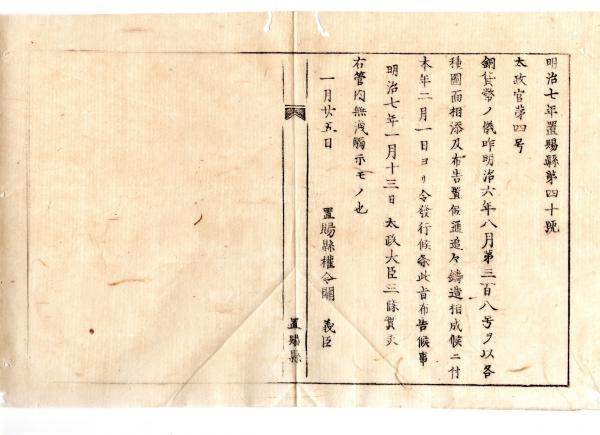 明治七年置賜縣第四十號
太政官第四号
銅貨幣ノ儀昨明治六年八月第三百八号ヲ以各
種圖面相添及布告置候處追々鑄造相成候ニ付
本年二月一日ヨリ令發行候条此旨布告候事
明治七年一月十三日 太政大臣三條實美
右管内無洩觸示モノ也
一月廿五日 置賜縣權令關 義臣
置賜縣